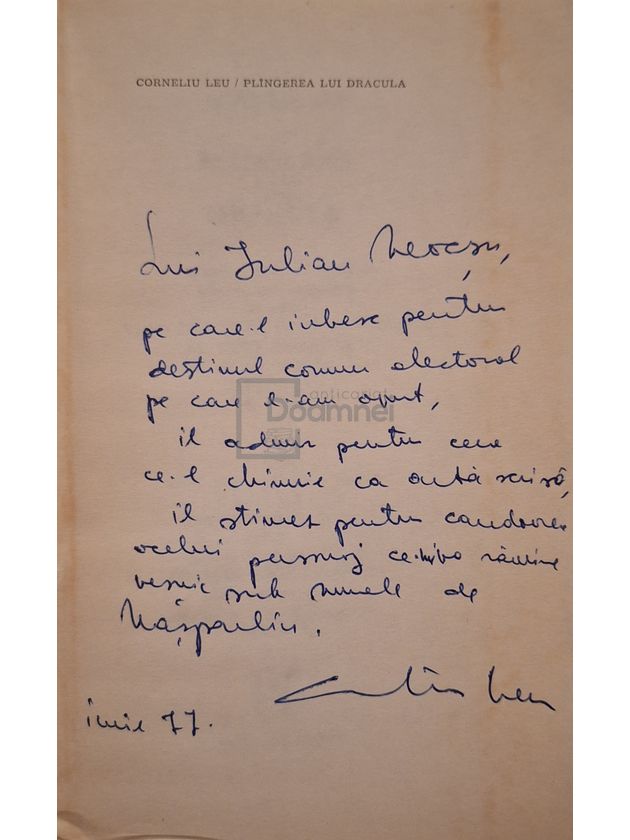 CORNELIU LEU / PLÎNGEREA LUI DRACULA
Lui Iulian Neacșu,
pe care-l iubesc pentru
destinul comun electoral
pe care l-am avut,
anticariat
Doamnei
îl admir pentru ceea
ce-l chinuie ca artă scrisă,
îl stimez pentru candoarea
acelui personaj ce-mi va rămîne
veșnic sub numele de
iunie 77.